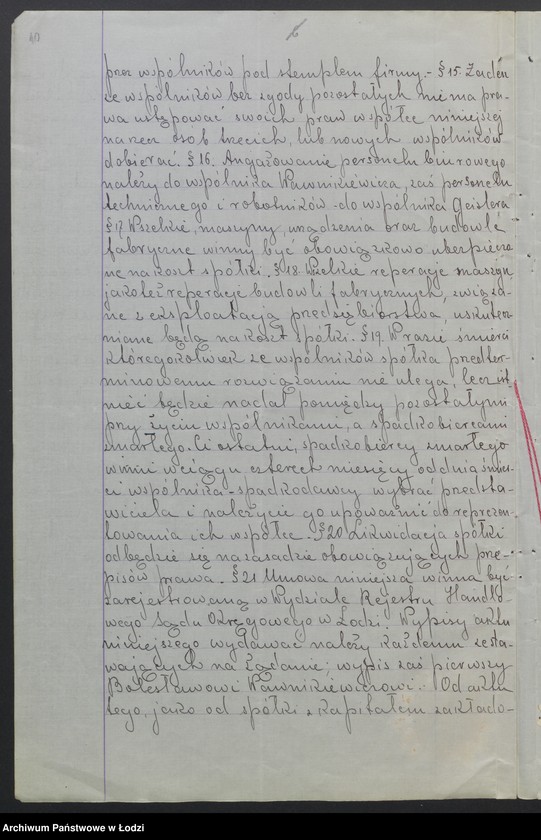 40
6
przez wspólników pod stemplem firmy.- § 15. Żaden
ze wspólników bez zgody pozostałych nie ma pra-
wa ustępować swoich praw w spółce niniejszej
na rzecz osób trzecich, lub nowych wspólników
dobierać. § 16. Angażowanie personelu biurowego
należy do wspólnika Wawnikiewicza, zaś personelu
technicznego i robotników - do wspólnika Geislera
§ 17. Wszelkie, maszyny, urządzenia oraz budowle
fabryczne winny być obowiązkowo ubezpieczo
ne na koszt spółki. § 18. Wszelkie reperacje maszyn
jako też reperacje budowli fabrycznych, związa-
ne z eksploatacją przedsiębiorstwa, uskutecz-
niane będą na koszt spółki. § 19. W razie śmierci
któregokolwiek ze wspólników spółka przedter-
minowemu rozwiązaniu nie ulega, lecz ist
nieć będzie nadal pomiędzy pozostałymi
przy życiu wspólnikami, a spadkobiercami
zmarłego. Ci ostatni, spadkobiercy zmarłego
winni w ciągu czterech miesięcy od dnia śmier-
ci wspólnika - spadkodawcy wybrać przedsta-
wiciela i należycie go upoważnić do reprezen-
towania ich w spółce. § 20 Likwidacja spółki
odbędzie się na zasadzie obowiązujących prze-
pisów prawa. § 21 Umowa niniejsza winna być
zarejestrowaną w Wydziale Rejestru Handlo-
wego Sądu Okręgowego w Łodzi. Wypisy aktu
niniejszego wydawać należy każdemu ze sta-
wających na żądanie; wypis zaś pierwszy
Bolesławowi Wawnikiewiczowi.- Od aktu
tego, jako od spółki z kapitałem zakłado-
Archiwum Państwowe w Łodzi